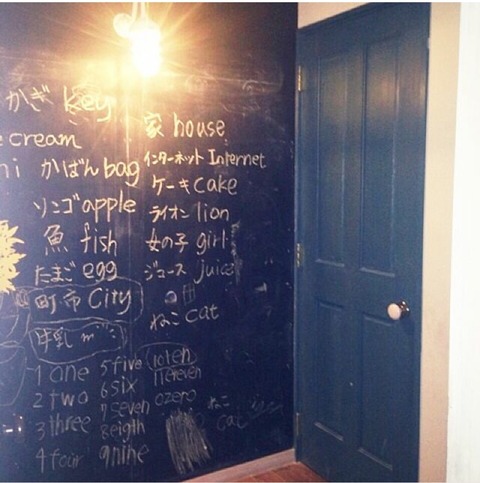 かぎ key
e cream
ni かばん bag
ソンゴ apple
魚 fish
たまご egg
町市 City
牛乳 m
1 one
2 two
3 three
4 four
5 five
6 six
7 seven
8 eigth
9 nine
10 ten
11 eleven
0 zero
家 house
インターネット Internet
ケーキ cake
ライオン lion
女の子 girl
ジュース juice
ねこ cat
ねこ
cat